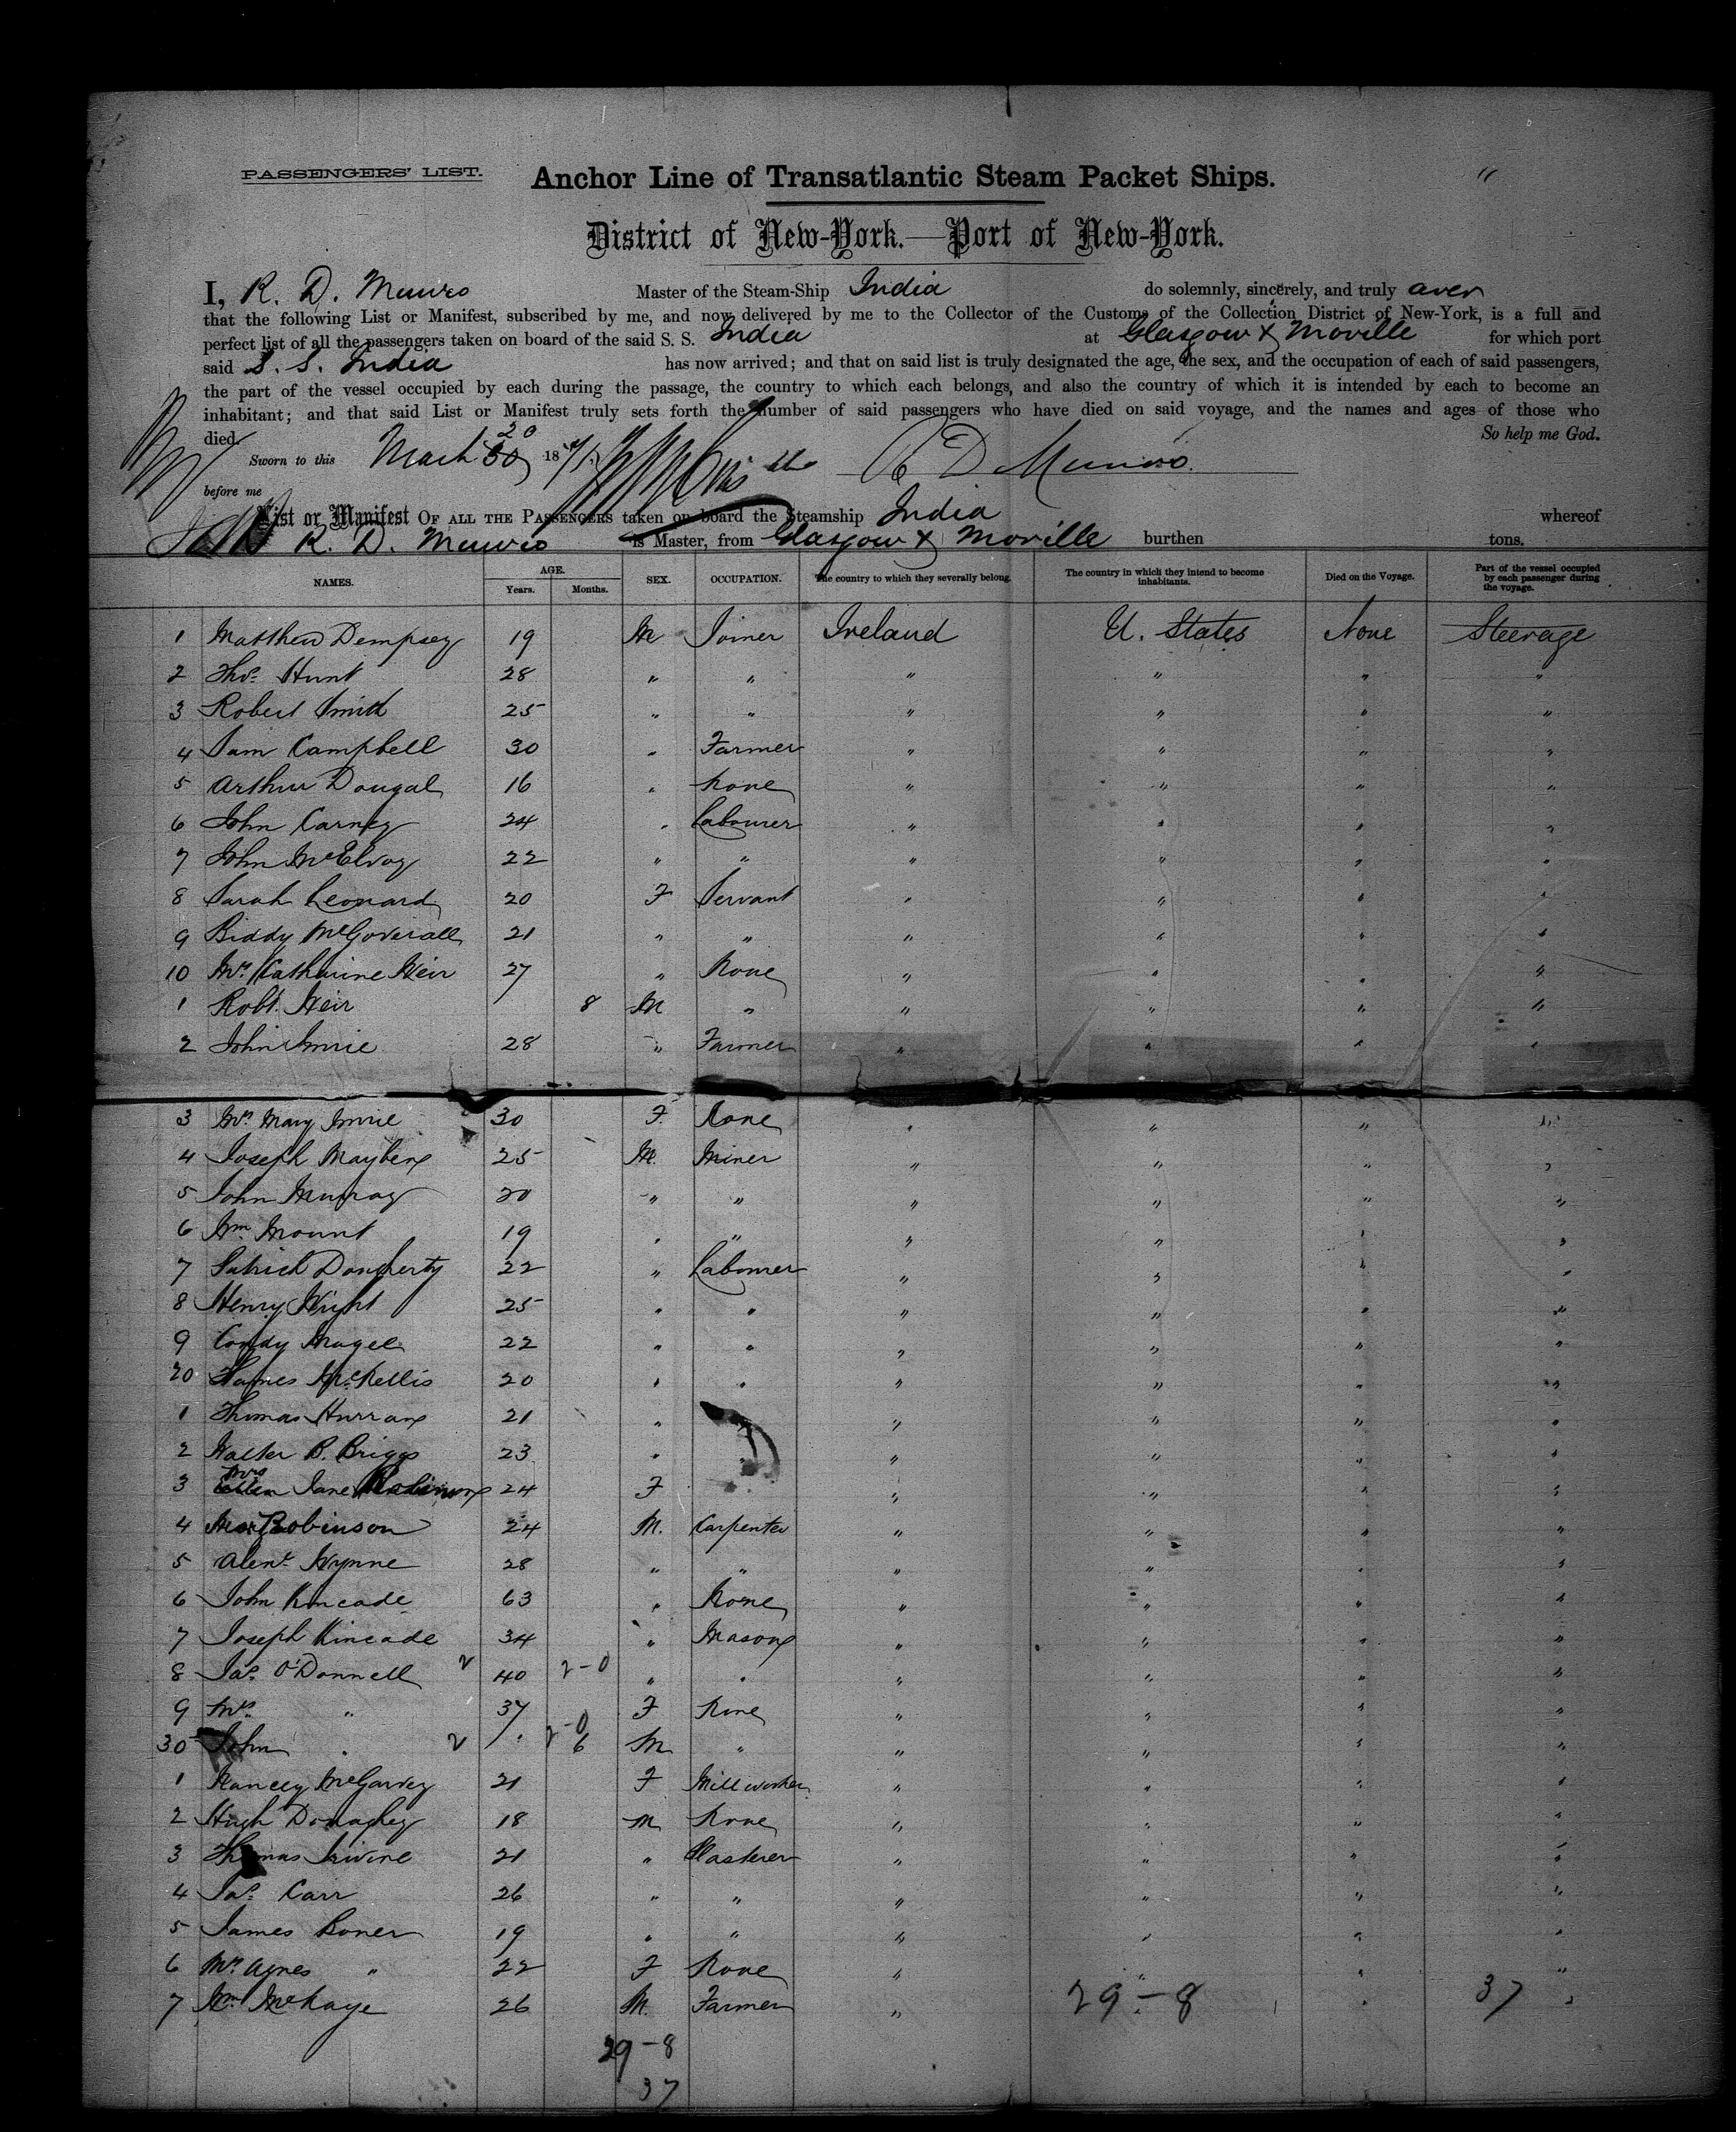 PASSENGERS' LIST.
Anchor Line of Transatlantic Steam Packet Ships.
District of New-York.—Port of New-York.
I, R. D. Munro Master of the Steam-Ship India do solemnly, sincerely, and truly aver
that the following List or Manifest, subscribed by me, and now delivered by me to the Collector of the Customs of the Collection District of New-York, is a full and
perfect list of all the passengers taken on board of the said S. S. India at Glasgow & Moville for which port
said S. S. India has now arrived; and that on said list is truly designated the age, the sex, and the occupation of each of said passengers,
the part of the vessel occupied by each during the passage, the country to which each belongs, and also the country of which it is intended by each to become an
inhabitant; and that said List or Manifest truly sets forth the number of said passengers who have died on said voyage, and the names and ages of those who
died. So help me God.
Sworn to this March 20 18 R D Munro
before me
List or Manifest OF ALL THE PASSENGERS taken on board the Steamship India whereof
R. D. Munro is Master, from Glasgow & Moville burthen tons.
NAMES. AGE. Years. Months. SEX. OCCUPATION. The country to which they severally belong. The country in which they intend to become inhabitants. Died on the Voyage. Part of the vessel occupied by each passenger during the voyage.
1 Matthew Dempsey 19 M Joiner Ireland U. States None Steerage
2 Thos. Hunt 28 " " " " " "
3 Robert Smith 25 " " " " " "
4 Sam Campbell 30 " Farmer " " " "
5 Arthur Dougal 16 " None " " " "
6 John Carney 24 " Labourer " " " "
7 John McElvoy 22 " " " " " "
8 Sarah Leonard 20 F Servant " " " "
9 Biddy McGoverall 21 " " " " " "
10 Mrs Catharine Weir 27 " None " " " "
1 Robt. Weir 8 M " " " " "
2 John Imrie 28 " Farmer " " " "
3 Mrs Mary Imrie 30 F. None " " " "
4 Joseph Mayberry 25 M. Miner " " " "
5 John Murray 20 " " " " " "
6 Wm Mount 19 " " " " " "
7 Patrick Dougherty 22 " Labourer " " " "
8 Henry Wright 25 " " " " " "
9 Condy Magee 22 " " " " " "
20 James 20 " " " " " "
1 Thomas 21 " " " " "
2 Walter B. Briggs 23 " " " " " "
3 Mrs Ellen Jane Robinson 24 F " " " "
4 Robinson 24 M. Carpenter " " " "
5 Alexr. Wynne 28 " " " " " "
6 John Kincade 63 " None " " " "
7 Joseph Kincade 34 " Mason " " " "
8 Jas. O'Donnell 40 2-0 " " " " " "
9 Mrs " 37 F None " " " "
30 John " 2-0 6 M " " " " "
1 Nancy McGarvey 21 F Mill worker " " " "
2 Hugh Donaghey 18 M None " " " "
3 Thomas Irvine 21 " Plasterer " " " "
4 Jas. Carr 26 " " " " " "
5 James Boner 19 " " " " " "
6 Mrs Agnes " 22 F None " " " "
7 Wm McKaye 26 M. Farmer " 29-8 " 37 "
29-8
37